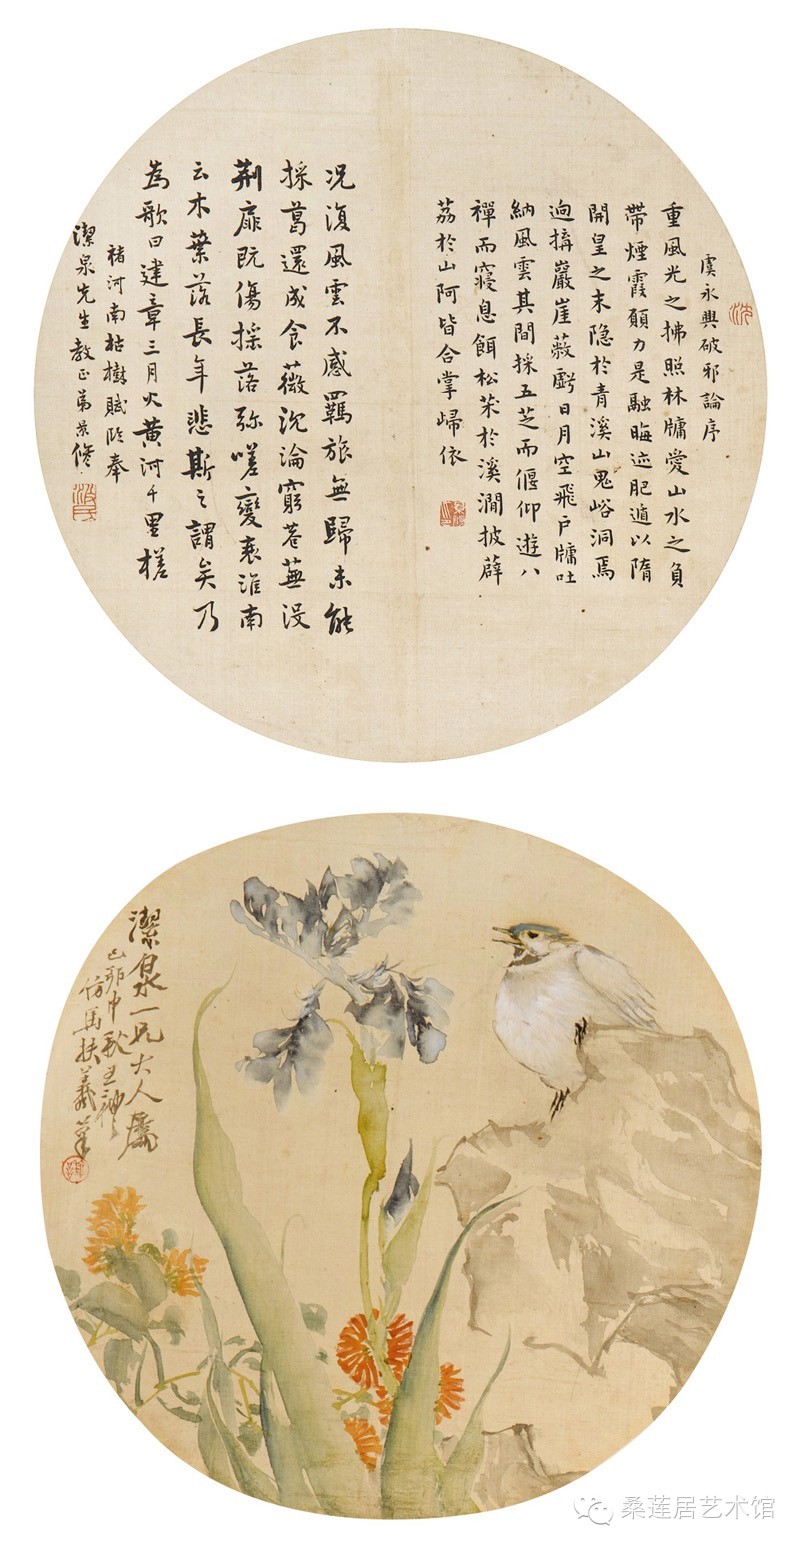 虞永興破邪論序
重風光之拂照林牖愛山水之負
帶煙霞願力是融晦迹肥遁以隋
開皇之末隐於青溪山鬼峪洞焉
迥構巖崖蔽虧日月空飛戶牖吐
納風雲其間採五芝而偃仰遊八
禪而寢息餌松朮於溪澗披薜
荔於山阿皆合掌歸依
况復風雲不感羈旅無歸未能
採葛還成食薇沉淪窮巷蕪沒
荆扉既傷搖落弥嗟變衰淮南
云木葉落長年悲斯之謂矣乃
為歌曰建章三月火黄河千里槎
褚河南枯樹賦臨奉
潔泉先生教正弟景修
潔泉一兄大人屬
己卯中秋王禮
仿馬扶羲筆
桑莲居艺术馆